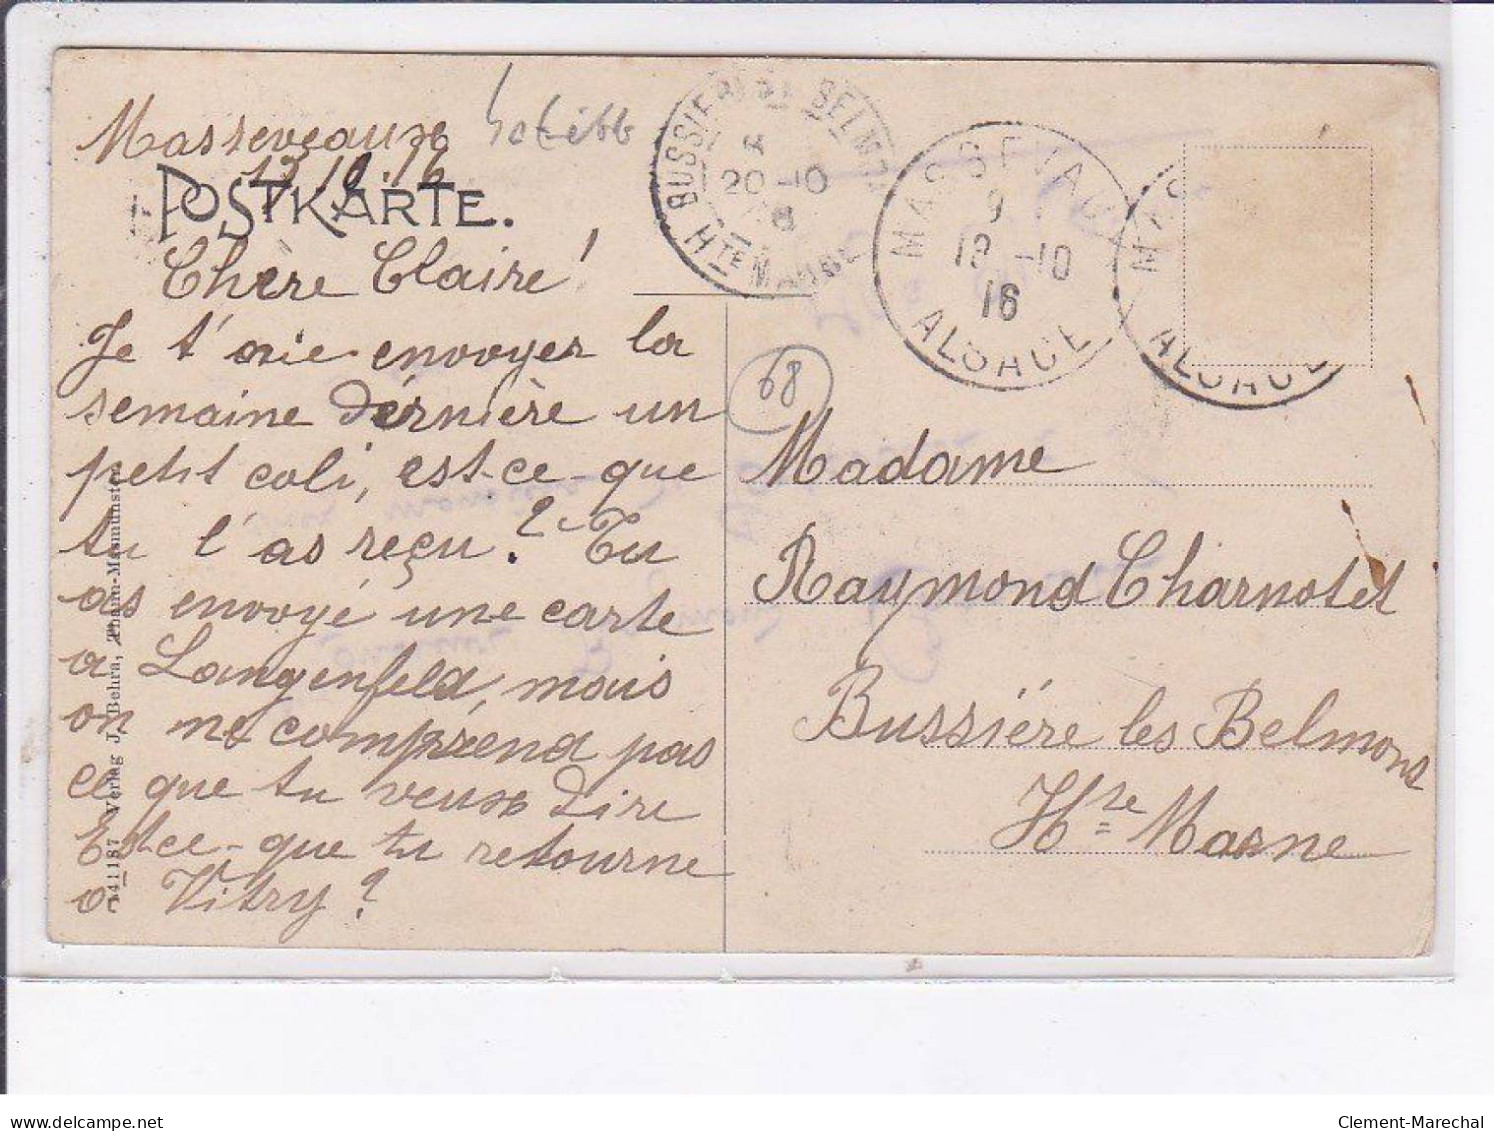 Masseveaux
13.10.16
POSTKARTE.
Chère Claire!
Je t'aie envoyer la
semaine dérnière un
petit coli, est-ce-que
tu l'as reçu? Tu
as envoyé une carte
a Langenfeld, mais
on ne comprend pas
ce que tu veux dire
Est-ce-que tu retourne
a Vitry?
Verlag J. Behra, Thann-Masmünster
BUSSIERES BELMONT
20-10
Hte MARNE
MASSEVAUX
9
18-10
16
ALSACE
MAS
ALSACE
68
Madame
Raymond Charnotet
Bussiére les Belmons
Hte Marne
Clement-Marechal
www.delcampe.net